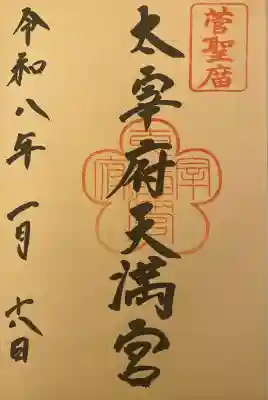 菅聖庿
太宰府天満宮
令和八年 一月 十八日